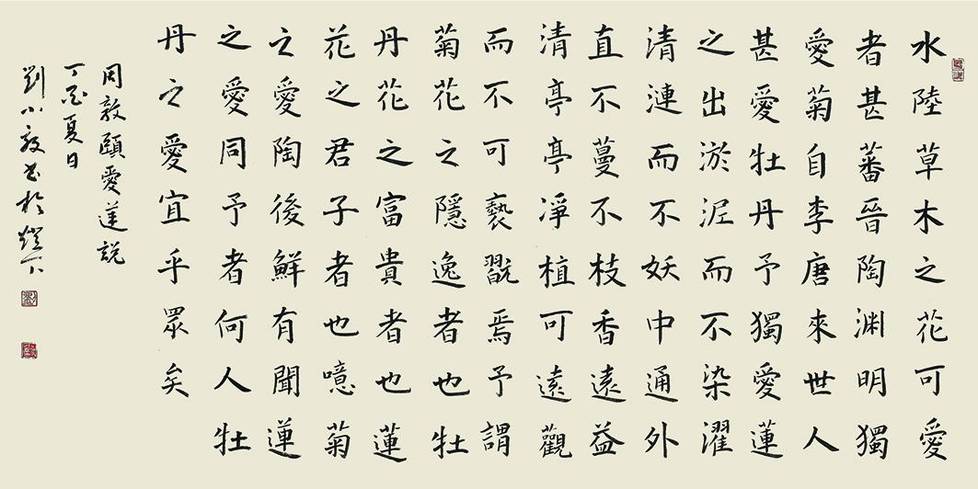 水陸草木之花可愛
者甚蕃晉陶渊明獨
愛菊自李唐來世人
甚愛牡丹予獨愛蓮
之出淤泥而不染濯
清漣而不妖中通外
直不蔓不枝香遠益
清亭亭凈植可遠觀
而不可褻翫焉予謂
菊花之隱逸者也牡
丹花之富貴者也蓮
花之君子者也噫菊
之愛陶後鮮有聞蓮
之愛同予者何人牡
丹之愛宜乎眾矣
周敦頤愛蓮説
丁亥夏日
劉小书於燈下